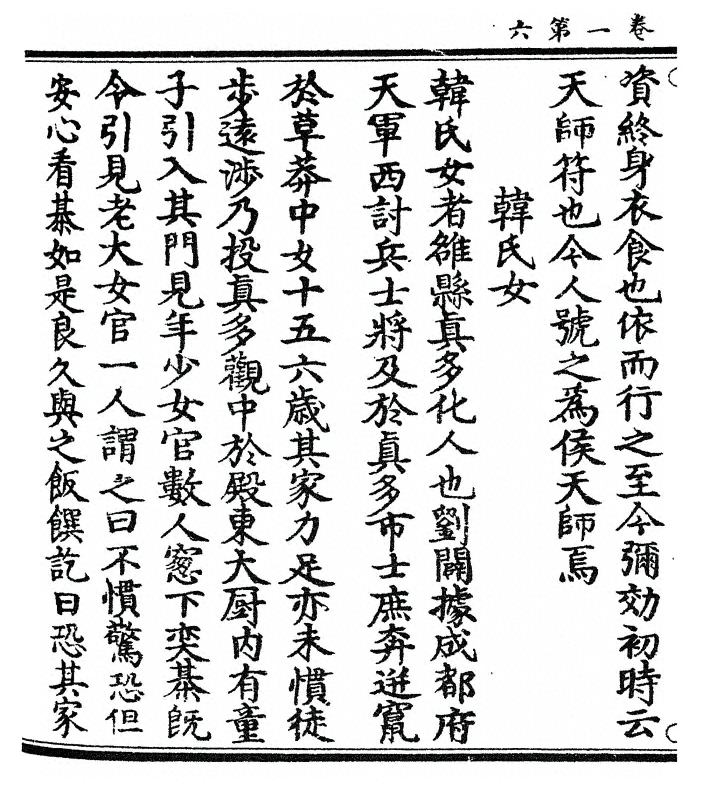 六第一卷
資終身衣食也依而行之至今彌効初時云
天師符也今人號之為侯天師焉
韓氏女
韓氏女者雒縣真多化人也劉闢據成都府
天軍西討兵士將及於真多市士庶奔逬竄
於草莽中女十五六歲其家力足亦未慣徒
步遠涉乃投真多觀中於殿東大厨内有童
子引入其門見年少女官數人窓下奕棊旣
令引見老大女官一人謂之曰不慣驚恐但
安心看棊如是良久與之飯饌訖曰恐其家